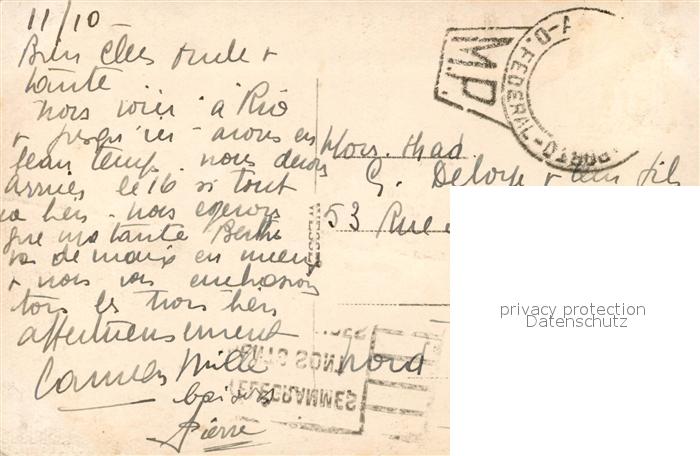 11/10
Bien chers oncle &
tante
Nous voici à Rio
& jusqu'ici avons eu
beau temp. nous devons
arriver le 16 si tout
va bien. nous espérons
que ma tante Berthe
va de mieux en mieux
& nous vous embrassons
tous les trois bien
affectueusement
Mille
baisers
Pierre
M.P.
D. FEDERAL
PORTO
Mons. Mad.
G. & leur fils
53 Rue
Nord
privacy protection
Datenschutz